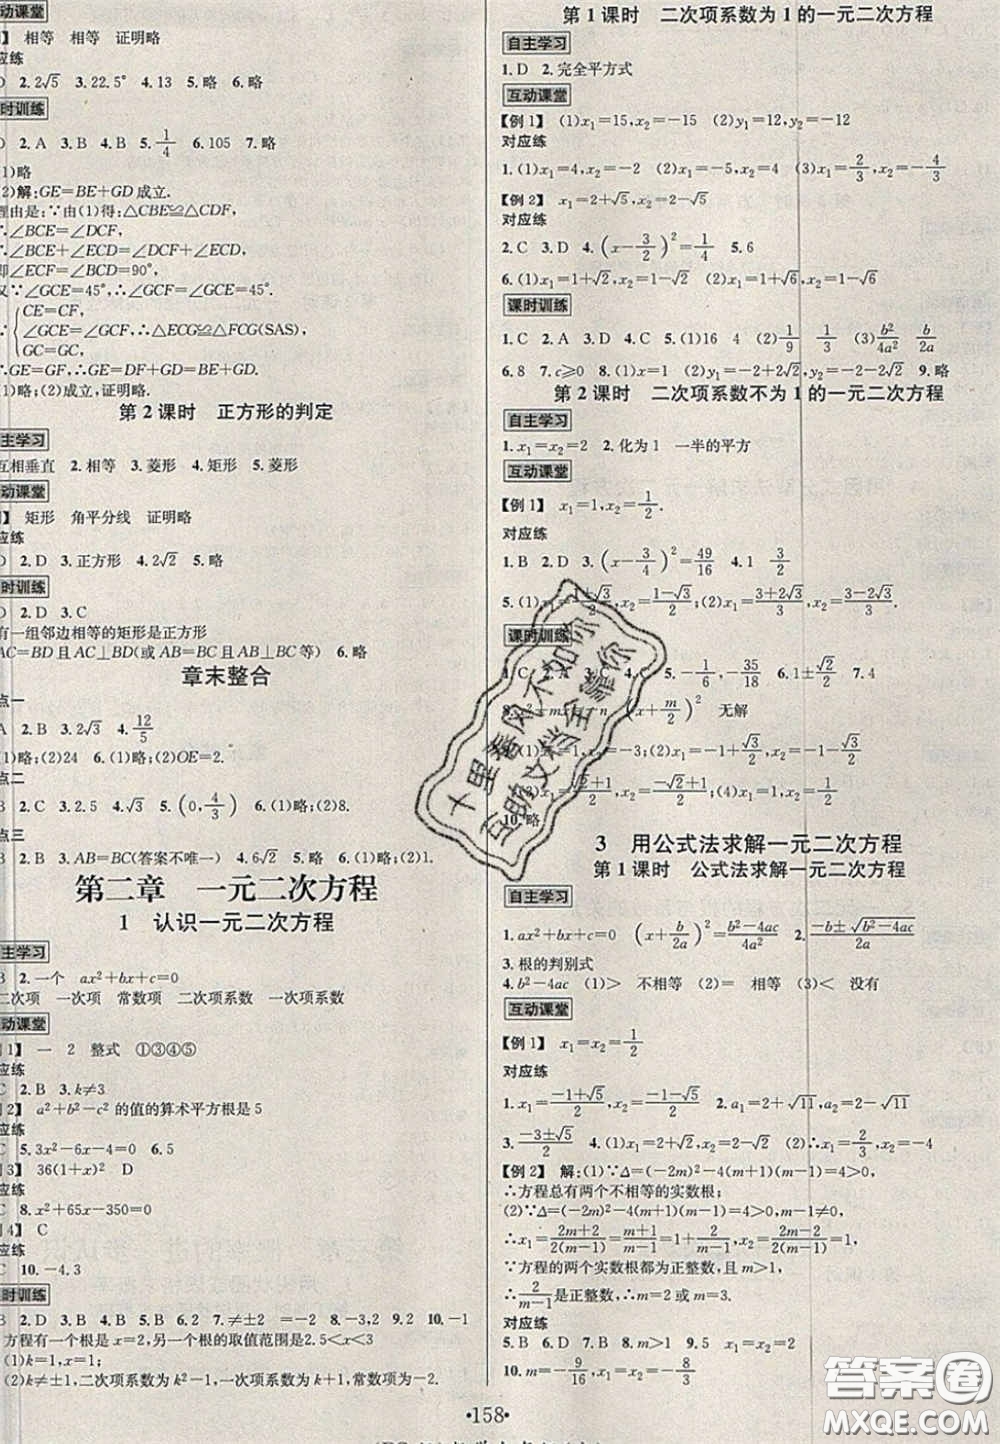 互动课堂
】 相等 相等 证明略
应练
2.2√5 3.22.5° 4.13 5.略 6.略
时训练
2.A 3.B 4.B 5.1/4 6.105 7.略
(1)略
(2)解:GE=BE+GD成立.
理由是:∵由(1)得:△CBE≌△CDF,
∴∠BCE=∠DCF,
∴∠BCE+∠ECD=∠DCF+∠ECD
即∠ECF=∠BCD=90°,
又∵∠GCE=45°,∴∠GCF=∠GCE=45°.
CE=CF,
∵{∠GCE=∠GCF,∴△ECG≌△FCG(SAS).
GC=GC,
∴GE=GF,∴GE=DF+GD=BE+GD.
(1)略;(2)成立,证明略.
第2课时 正方形的判定
自主学习
互相垂直 2.相等 3.菱形 4.矩形 5.菱形
互动课堂
】 矩形 角平分线 证明略
应练
2.D 3.正方形 4.2√2 5.略
时训练
2.D 3.C
有一组邻边相等的矩形是正方形
AC=BD且AC⊥BD(或AB=BC且AC⊥BC等) 6.略
章末整合
点一
A 2.B 3.2√3 4.12/5
(1)略;(2)24 6.(1)略;(2)OE=2.
点二
B 2.C 3.2.5 4.√3 5.(0,4/3) 6.(1)略;(2)8.
点三
B 2.B 3.AB=BC(答案不唯一) 4.6√2 5.略 6.(1)略;(2)1.
第二章 一元二次方程
1 认识一元二次方程
自主学习
B 2.一个 ax²+bx+c=0
二次项 一次项 常数项 二次项系数 一次项系数
互动课堂
例1】 一 2 整式 ①③④⑤
应练
C 2.B 3.k≠3
例2】 a²+b²-c²的值的算术平方根是5
应练
C 5.3x²-6x-4=0 6.5
例3】 36(1+x)² D
应练
C 8.x²+65x-350=0
例4】 C
应练
C 10.-4,3
课时训练
B 2.D 3.B 4.B 5.B 6.B 7.≠±1 =-1 =2 8.-2 9.2 10.-1
方程有一个根是x=2,另一个根的取值范围是2.5<x<3
(1)k=1,x=1;
(2)k≠±1,二次项系数为k²-1,一次项系数为k+1,常数项为-2.
第1课时 二次项系数为1的一元二次方程
自主学习
1.D 2.完全平方式
互动课堂
【例1】 (1)x₁=15,x₂=-15 (2)y₁=12,y₂=-12
对应练
1.(1)x₁=4,x₂=-2 (2)x₁=-5,x₂=-4 (3)x₁=2/3,x₂=-4/3
【例2】 x₁=2+√5,x₂=2-√5
对应练
2.C 3.D 4.(x-3/2)²=1/4 5.6
6.(1)x₁=1+√2,x₂=1-√2 (2)x₁=1+√6,x₂=1-√6
课时训练
1.C 2.A 3.D 4.A 5.(1)16 4 (2)1/9 1/3 (3)b²/4a² b/2a
6.8 7.c≥0 8.(1)x=1 (2)x₁=2+√7,x₂=2-√7 9.略
第2课时 二次项系数不为1的一元二次方程
自主学习
1.x₁=x₂=2 2.化为1 一半的平方
互动课堂
【例1】 x₁=1,x₂=1/2.
对应练
1.B 2.D 3.(x-3/4)²=49/16 4.1 3/2
5.(1)x=(1±√3)/2;(2)x₁=(3+2√3)/3,x₂=(3-2√3)/3.
课时训练
1.C 2.A 5.-1/4 -35/18 6.1±√2/2
(x+m/2)² 无解
=-3;(2)x₁=-1+√3/2,x₂=-1-√3/2
(3)x₁=(√2+1)/2,x₂=(-√2+1)/2
10.略
3 用公式法求解一元二次方程
第1课时 公式法求解一元二次方程
自主学习
1.ax²+bx+c=0 (x+b/2a)²=(b²-4ac)/4a² 2.(-b±√(b²-4ac))/2a
3.根的判别式
4.b²-4ac (1)> 不相等 (2)= 相等 (3)< 没有
互动课堂
【例1】 x₁=x₂=1/2
对应练
1.x₁=(-1+√5)/2,x₂=(-1-√5)/2 2.a₁=2+√11,a₂=2-√11
3.(-3±√5)/2 4.(1)x₁=2,x₂=1 (2)x₁=2/3,x₂=-4
【例2】 解:(1)∵Δ=(-2m)²-4(m+1)(m-1)=4>0,
∴方程总有两个不相等的实数根;
(2)∵Δ=(-2m)²-4(m+1)(m-1)=4>0,
∴x₁=(2m+2)/2(m-1)=(m+1)/(m-1),x₂=(2m-2)/2(m-1)=1,
∵方程的两个实数根都为正整数,(m+1)/(m-1)=1+2/(m-1),
∴2/(m-1)是正整数,∴m=2或m=3.
对应练
5.B 6.D 7.C 8.m>1 9.m=2 x₁=x₂=2
10.m=-9/16 x₁=x₂=-8/3
•158•
十里春风不如你
互助文档全靠你
答案圈
MXQE.COM